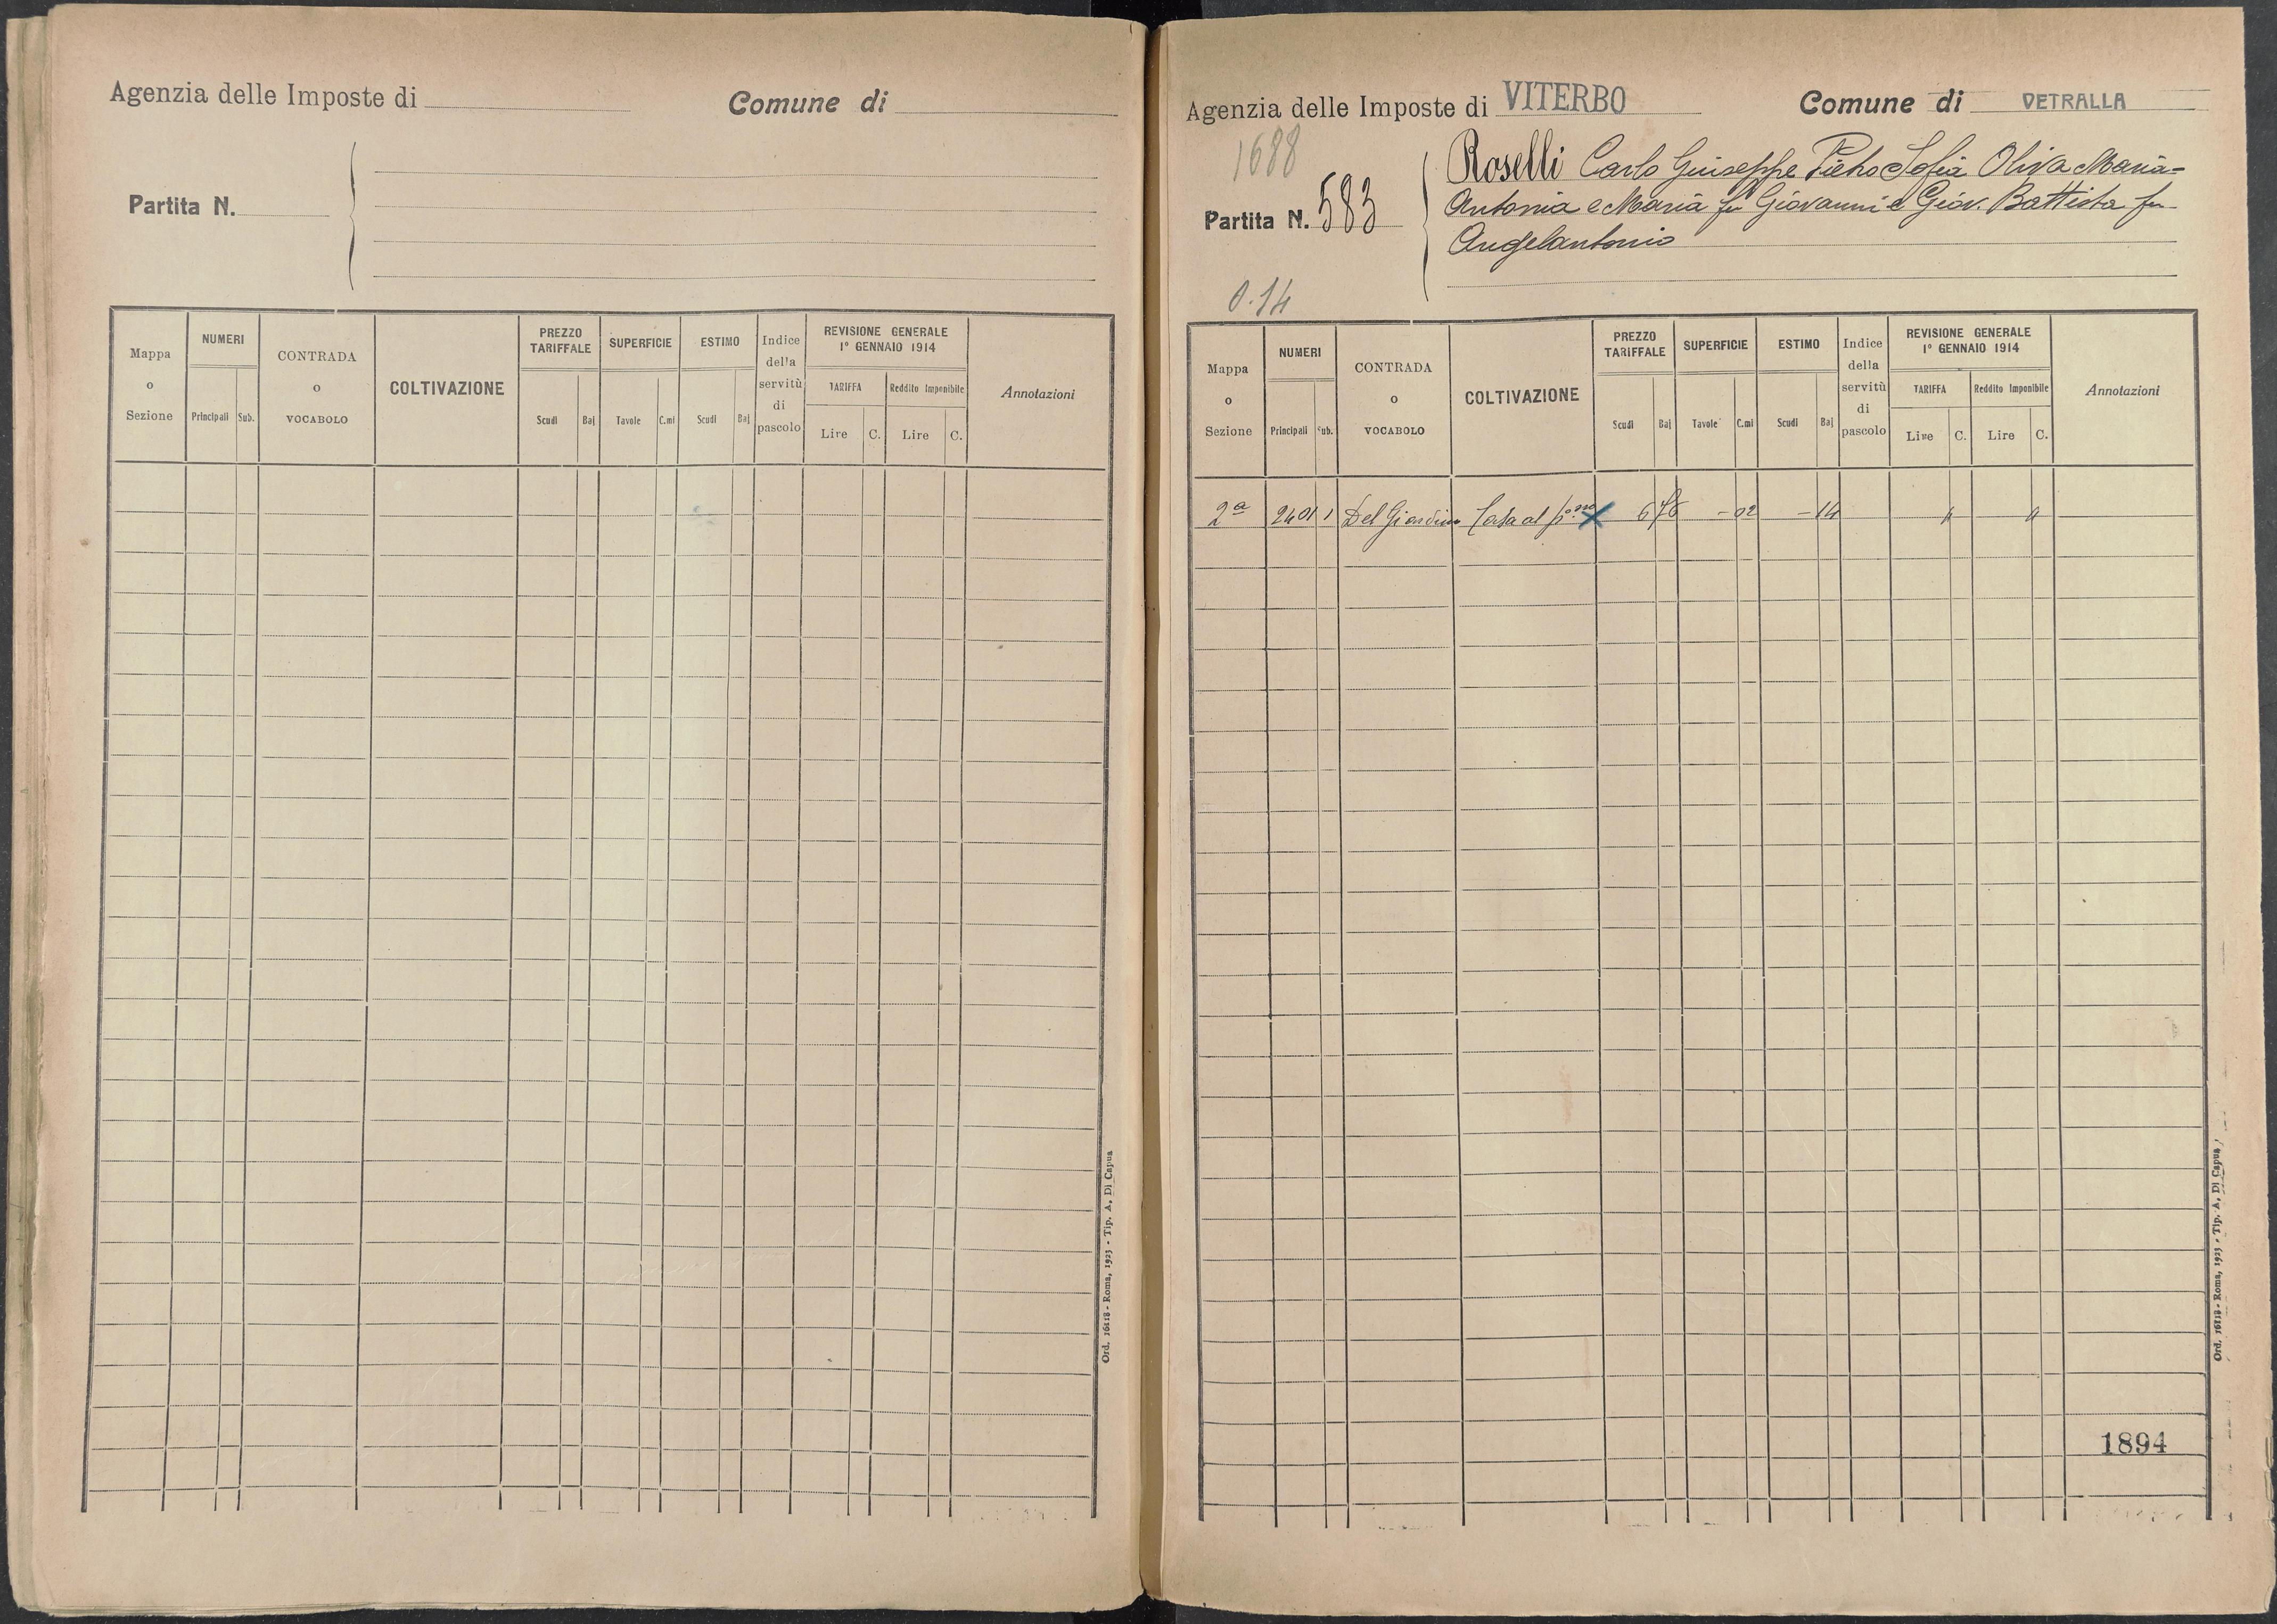 Agenzia delle Imposte di
Comune di
Partita N.
Mappa o Sezione
NUMERI
Principali Sub.
CONTRADA o VOCABOLO
COLTIVAZIONE
PREZZO TARIFFALE
Scudi Baj
SUPERFICIE
Tavole C.mi
ESTIMO
Scudi Baj
Indice della servitù di pascolo
REVISIONE GENERALE
1° GENNAIO 1914
TARIFFA Reddito Imponibile
Lire C. Lire C.
Annotazioni
Ord. 16118 - Roma, 1923 - Tip. A. Di Capua
Agenzia delle Imposte di VITERBO
Comune di VETRALLA
1688
Partita N. 583
Roselli Carlo Giuseppe Pietro Sofia Oliva Maria-
Antonia e Maria fu Giovanni e Giov. Battista fu
Angelantonio
0.14
Mappa o Sezione
NUMERI
Principali Sub.
CONTRADA o VOCABOLO
COLTIVAZIONE
PREZZO TARIFFALE
Scudi Baj
SUPERFICIE
Tavole C.mi
ESTIMO
Scudi Baj
Indice della servitù di pascolo
REVISIONE GENERALE
1° GENNAIO 1914
TARIFFA Reddito Imponibile
Lire C. Lire C.
Annotazioni
2a 2401 1 Del Giardino Casa al p.mo X 6 76 - 02 - 14 " "
1894
Ord. 16118 - Roma, 1923 - Tip. A. Di Capua